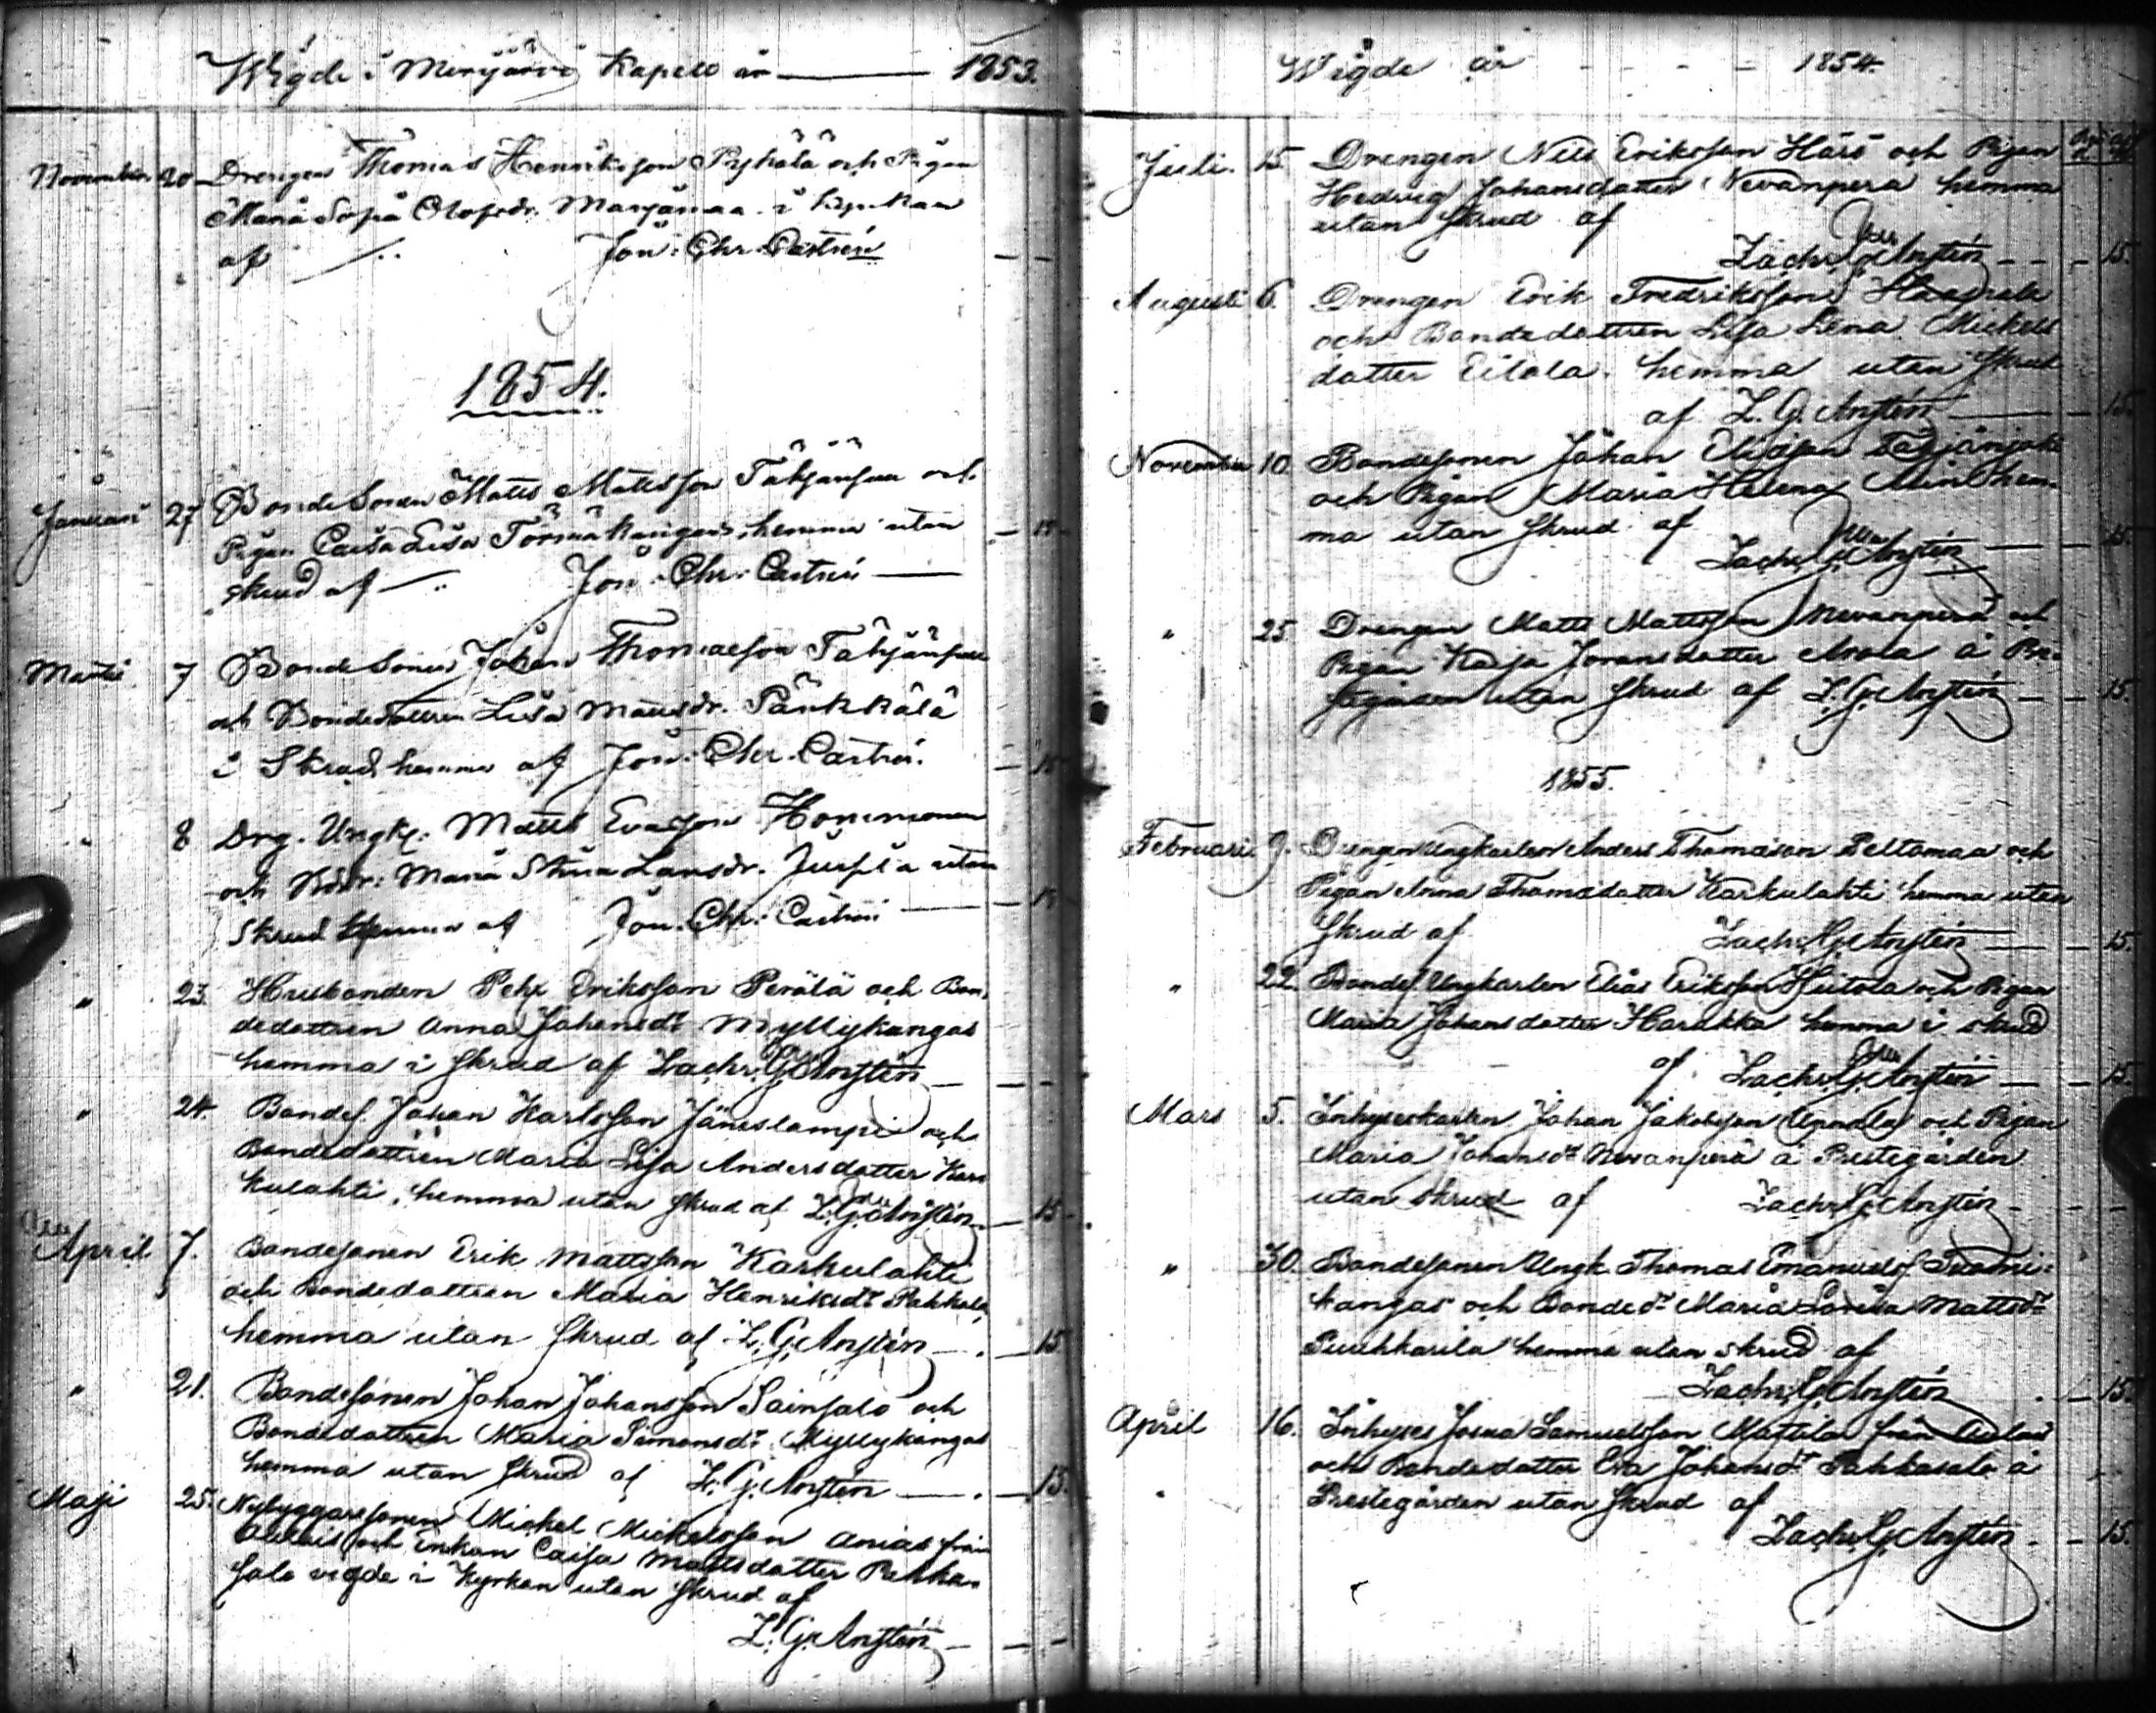 Wigde i Merijärvi Kapell år 1853.
November 20 Drengen Thomas Henriksson Pyhälä och Pigan
Maria Sofia Olofsdr. Marjamaa i kyrkan
af Jon: Chr. Castrén
1854.
Januari 27 Bonde Sonen Matts Mattsson Tähjänjoki och
Pigan Caisa Lisa Törmäkangas, hemma utan
skrud af Jon: Chr: Castrén 15
Martii 7 Bonde Sonen Johan Thomasson Tähjänjoki
och Bondedottren Lisa Mattsdr. Pänkkälä
i Skrud hemma af Jon: Chr. Castrén. 15
" 8 Drg. Ungk: Matts Evasson Hommonen
och Maria Stina Larsdr. utan
Skrud hemma af Jon. Chr: Castrén 15
" 23. Husbonden Pehr Eriksson Perälä och Bon-
dedottren Anna Johansdr Myllykangas
hemma i skrud af Zachr. G. Anstén
" 24. Bondes. Johan Karlsson Jäneslampi och
Bondedottren Maria Lisa Andersdotter Kar-
kulahti, hemma utan skrud af Z. G. Anstén 15
April 7. Bondesonen Erik Mattsson Karkulahti
och Bondedottren Maria Henriksdr Pahkala
hemma utan skrud af Z. G. Anstén 15
" 21. Bondesonen Johan Johansson Sainsalo och
Bondedottren Maria Simonsdr. Myllykangas
hemma utan skrud af Z. G. Anstén 15.
Maji 25. Nybyggaresonen Mickel Mickelsson Anias från
och Enkan Caisa Mattsdotter Pahka-
sala vigde i Kyrkan utan skrud af
Z. G. Anstén
Wigde år 1854.
Juli. 15. Drengen Nils Eriksson Hårs och Pigan
Hedvig Johansdotter Nevanperä hemma
utan skrud af
Zachr. G. Anstén 15.
Augusti 6. Drengen Erik Fredriksson
och Bondedottren Lisa Lena Mickels
dotter Eilola. hemma utan skrud
af Z. G. Anstén 15.
November 10. Bondesonen Johan Eliasson Tähjänjoki
och Pigan Maria Helena hem-
ma utan skrud af
Zachr. G. Anstén 15
" 25 Drengen Matts Mattsson Nevanperä och
Pigan Kaisa Joransdotter Anola å Pre-
stgården utan skrud af Z. G. Anstén 15.
1855.
Februarii 9. Drengen Ungkarlen Anders Thomasson Peltomaa och
Pigan Anna Thomasdotter Karkulahti hemma utan
skrud af Zachr. G. Anstén 15.
" 22. Bondes. Ungkarlen Elias Eriksson Hietala och Pigan
Maria Johansdotter Harakka hemma i skrud
af Zachr. G. Anstén 15.
Mars 5. Inhyseskarlen Johan Jakobsson och Pigan
Maria Johansdr Nevanperä å Prestegården
utan skrud af Zachr. G. Anstén
" 30. Bondesonen Ungk. Thomas Emanuels. Tuomi-
kangas och Bonded. Maria Lovisa Mattsdr
Puuhkarila hemma utan skrud af
Zachr. G. Anstén 15.
April 16. Inhyses Josua Samuelsson Mattila från
och Bondedotter Eva Johansdr Pahkasalo å
Prestegården utan skrud af
Zachr. G. Anstén 15.